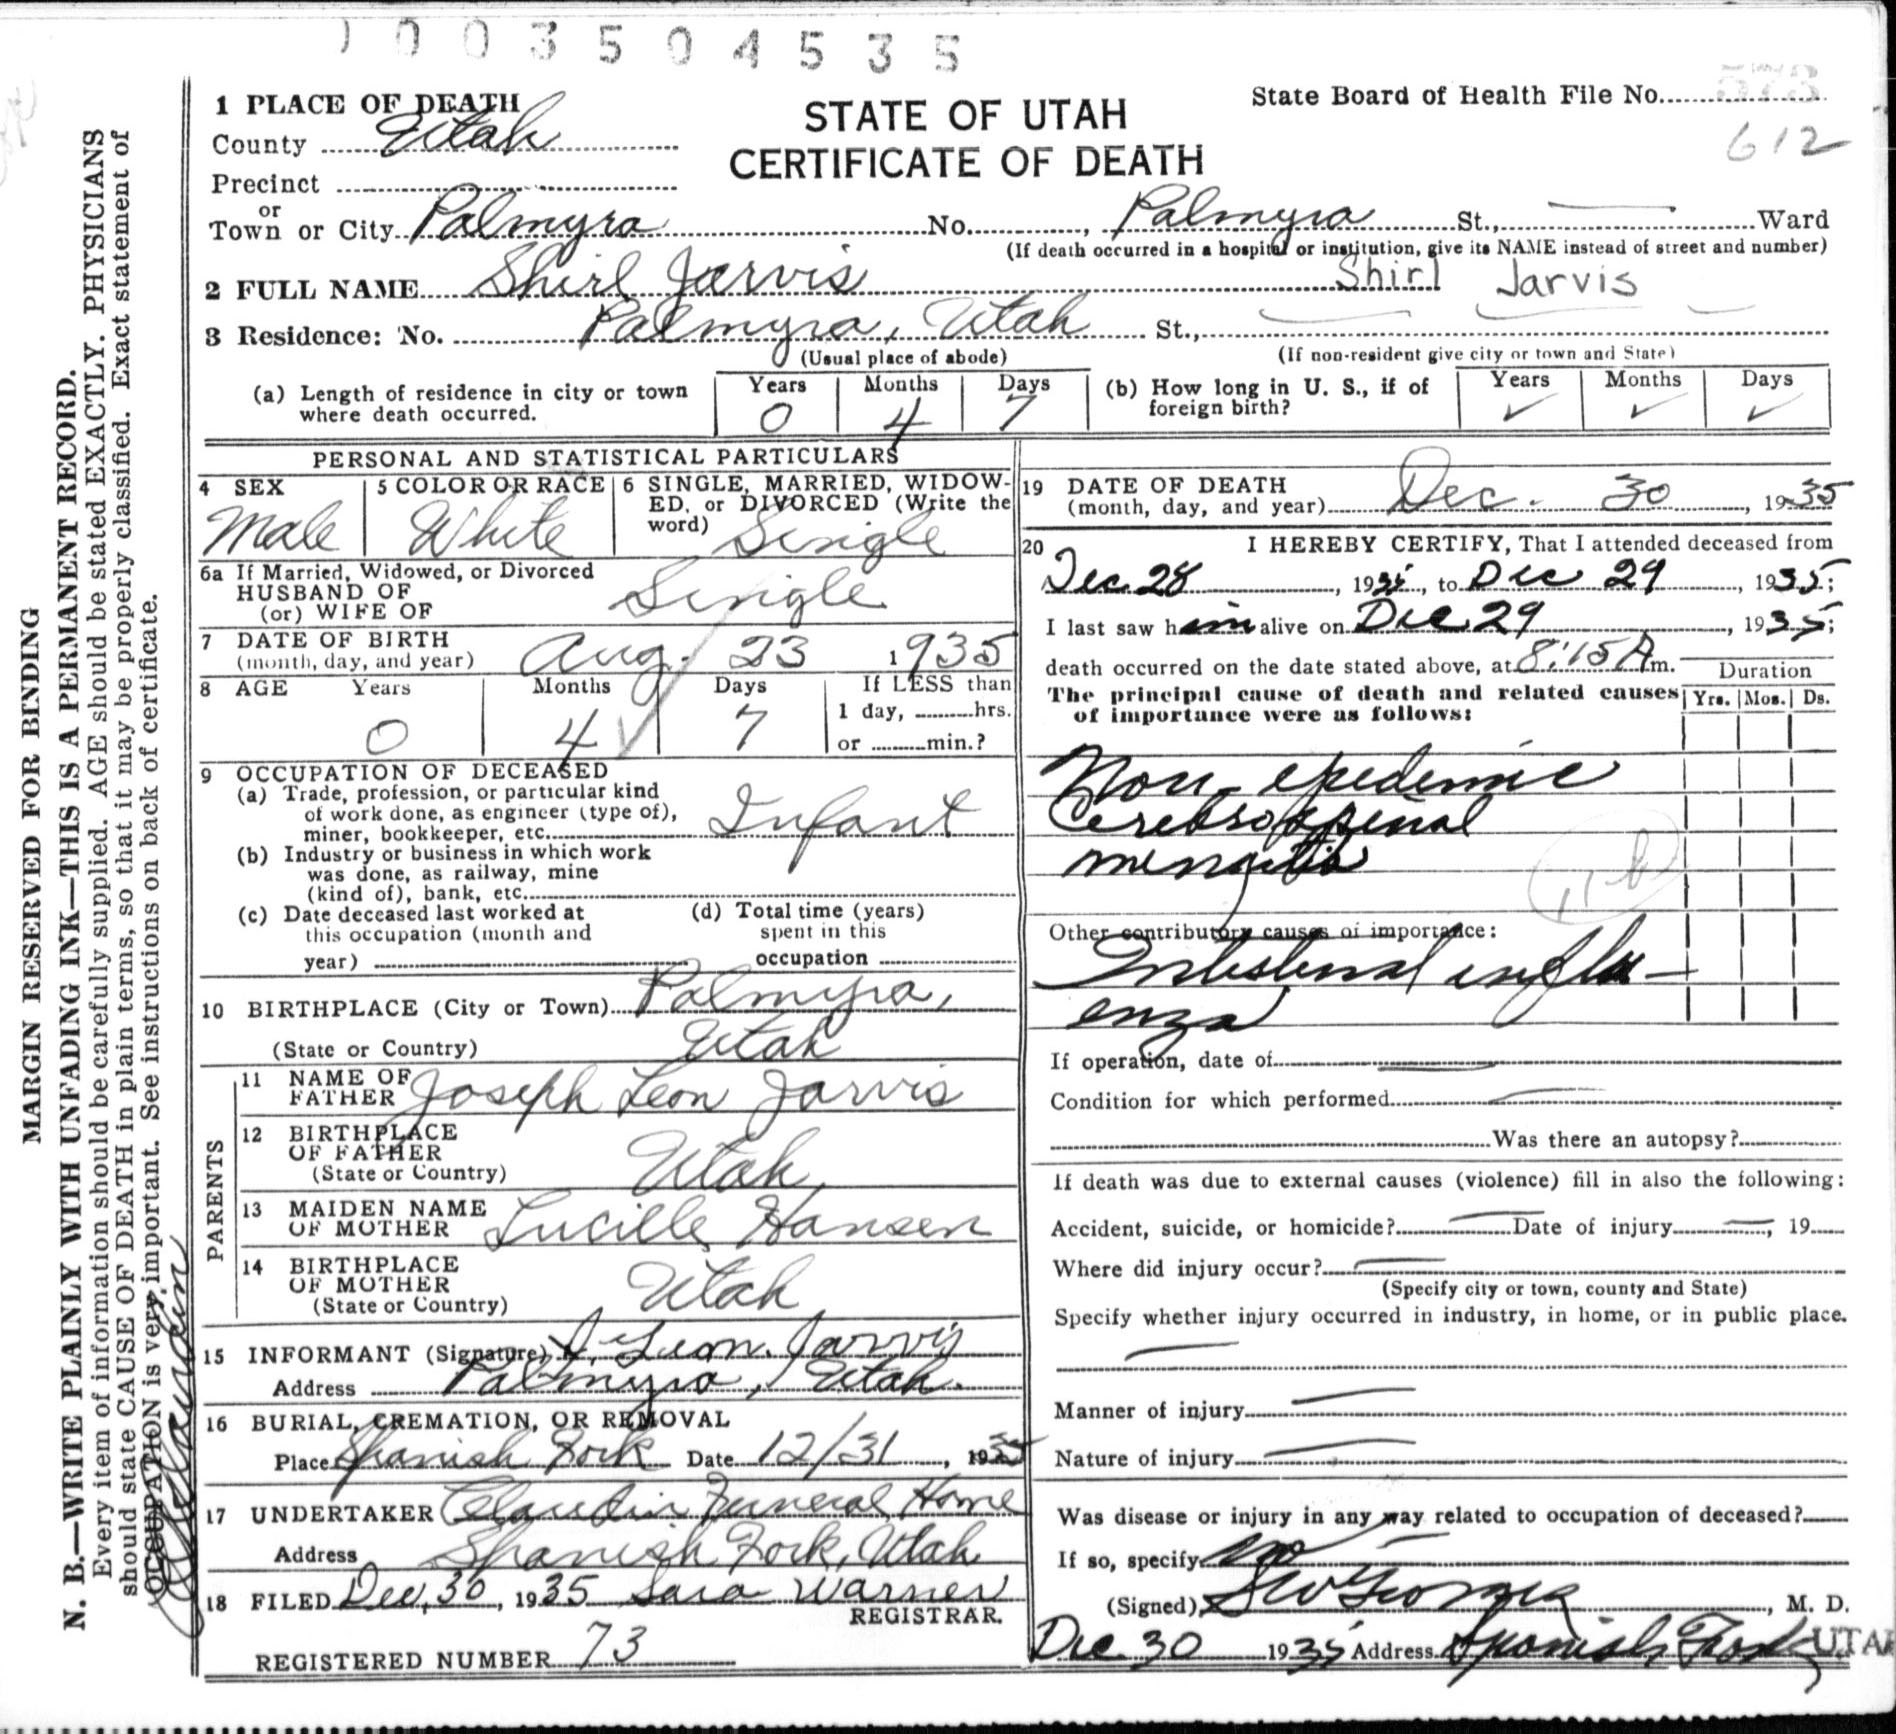 0 0 3 5 0 4 5 3 5
1 PLACE OF DEATH
County Utah
Precinct
or
Town or City Palmyra No. , Palmyra St., Ward
(If death occurred in a hospital or institution, give its NAME instead of street and number)
STATE OF UTAH
CERTIFICATE OF DEATH
State Board of Health File No. 573
612
2 FULL NAME Shirl Jarvis Shirl Jarvis
3 Residence: No. Palmyra, Utah St.,
(Usual place of abode) (If non-resident give city or town and State)
(a) Length of residence in city or town where death occurred. Years 0 Months 4 Days 7
(b) How long in U. S., if of foreign birth? Years ✓ Months ✓ Days ✓
PERSONAL AND STATISTICAL PARTICULARS
4 SEX
Male
5 COLOR OR RACE
White
6 SINGLE, MARRIED, WIDOW-
ED, or DIVORCED (Write the
word) Single
6a If Married, Widowed, or Divorced
HUSBAND OF
(or) WIFE OF Single
7 DATE OF BIRTH
(month, day, and year) Aug. 23 1935
8 AGE Years Months Days If LESS than
0 4 7 1 day, hrs.
or min.?
9 OCCUPATION OF DECEASED
(a) Trade, profession, or particular kind
of work done, as engineer (type of),
miner, bookkeeper, etc. Infant
(b) Industry or business in which work
was done, as railway, mine
(kind of), bank, etc.
(c) Date deceased last worked at
this occupation (month and
year)
(d) Total time (years)
spent in this
occupation
10 BIRTHPLACE (City or Town) Palmyra,
(State or Country) Utah
PARENTS
11 NAME OF
FATHER Joseph Leon Jarvis
12 BIRTHPLACE
OF FATHER
(State or Country) Utah
13 MAIDEN NAME
OF MOTHER Lucille Hansen
14 BIRTHPLACE
OF MOTHER
(State or Country) Utah
15 INFORMANT (Signature) J. Leon Jarvis
Address Palmyra, Utah.
16 BURIAL, CREMATION, OR REMOVAL
Place Spanish Fork Date 12/31, 1935
17 UNDERTAKER Claudin Funeral Home
Address Spanish Fork, Utah
18 FILED Dec. 30, 1935 Sara Warner
REGISTRAR.
REGISTERED NUMBER 73
19 DATE OF DEATH
(month, day, and year) Dec. 30, 1935
20 I HEREBY CERTIFY, That I attended deceased from
Dec 28, 1935, to Dec 29, 1935;
I last saw him alive on Dec 29, 1935;
death occurred on the date stated above, at 8:15 A m.
Duration
The principal cause of death and related causes
of importance were as follows:
Yrs. Mos. Ds.
Non-epidemic
Cerebrospinal
meningitis
11 b
Other contributory causes of importance:
Intestinal influ-
enza
If operation, date of
Condition for which performed
Was there an autopsy?
If death was due to external causes (violence) fill in also the following:
Accident, suicide, or homicide? Date of injury , 19
Where did injury occur?
(Specify city or town, county and State)
Specify whether injury occurred in industry, in home, or in public place.
Manner of injury
Nature of injury
Was disease or injury in any way related to occupation of deceased?
If so, specify no
(Signed) , M. D.
Dec. 30 1935 Address Spanish Fork UTAH
MARGIN RESERVED FOR BINDING
N. B.—WRITE PLAINLY WITH UNFADING INK—THIS IS A PERMANENT RECORD.
Every item of information should be carefully supplied. AGE should be stated EXACTLY. PHYSICIANS
should state CAUSE OF DEATH in plain terms, so that it may be properly classified. Exact statement of
OCCUPATION is very important. See instructions on back of certificate.